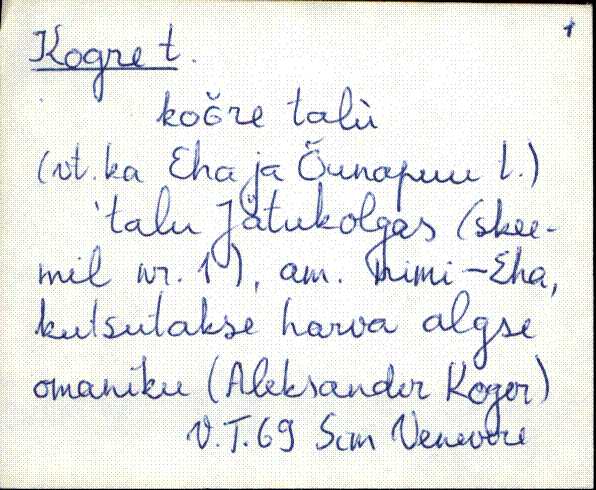 1
Kogre t.
koğre talù
(vt. ka Eha ja Õunapuu t.)
'talu Jätukolgas (skee-
mil nr. 1), am. nimi - Eha,
kutsutakse harva algse
omaniku (Aleksander Koger)
V.T. 69 Sim Venevere